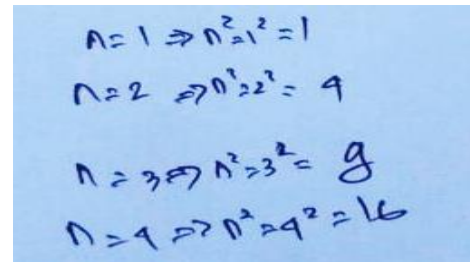 n=1 ⇒ n²=1²=1
n=2 ⇒ n²=2²= 4
n=3 ⇒ n²=3²= 9
n=4 ⇒ n²=4²=16